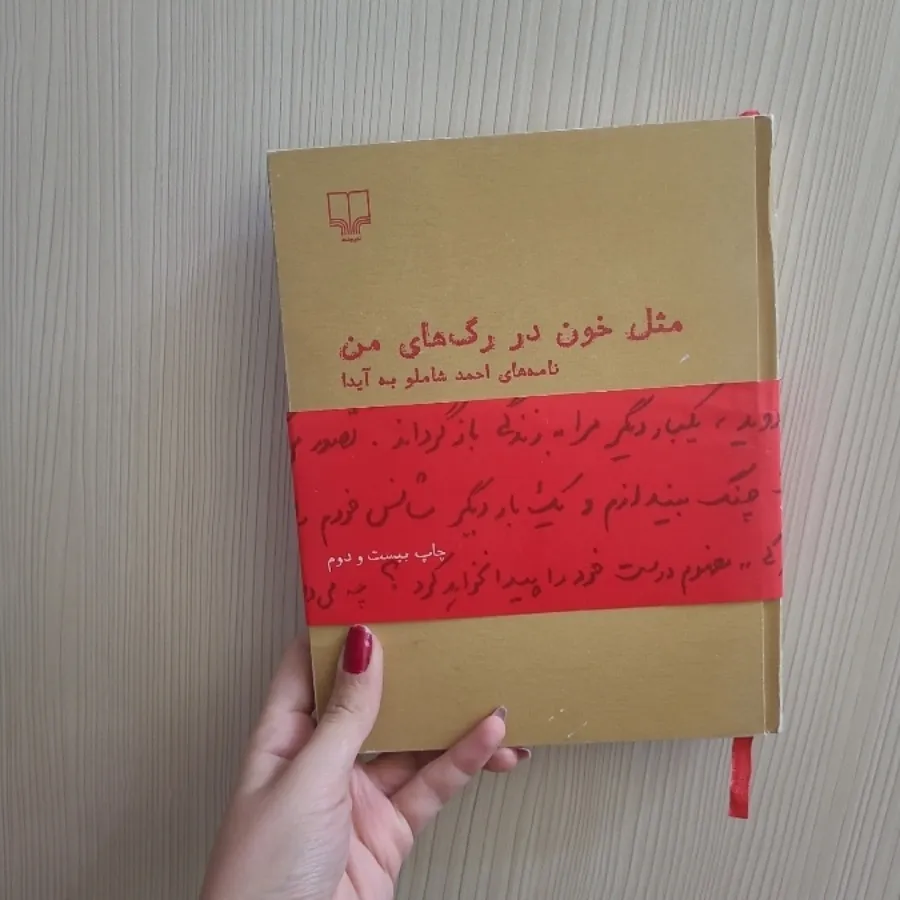 نشرچشمه
مثل خون در رگ‌های من
نامه‌های احمد شاملو به آیدا
یکبار دیگر مرا به زندگی باز گرداند . تصور
چنگ بیندازم و یک بار دیگر شانس خودم
چاپ بیست و دوم
مفهوم درست خود را پیدا نخواهد کرد ؟ چه